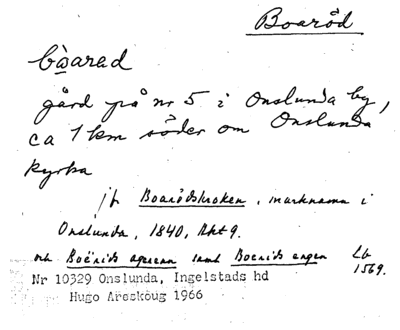 Boaröd
bòarad
gård på nr 5 i Onslunda by,
ca 1 km söder om Onslunda
kyrka
jfr Boarödskroken, marknamn i
Onslunda, 1840, Akt 9.
och Boërids agrerna samt Boerids engen Lb
1569.
Nr 10329 Onslunda, Ingelstads hd
Hugo Areskoug 1966